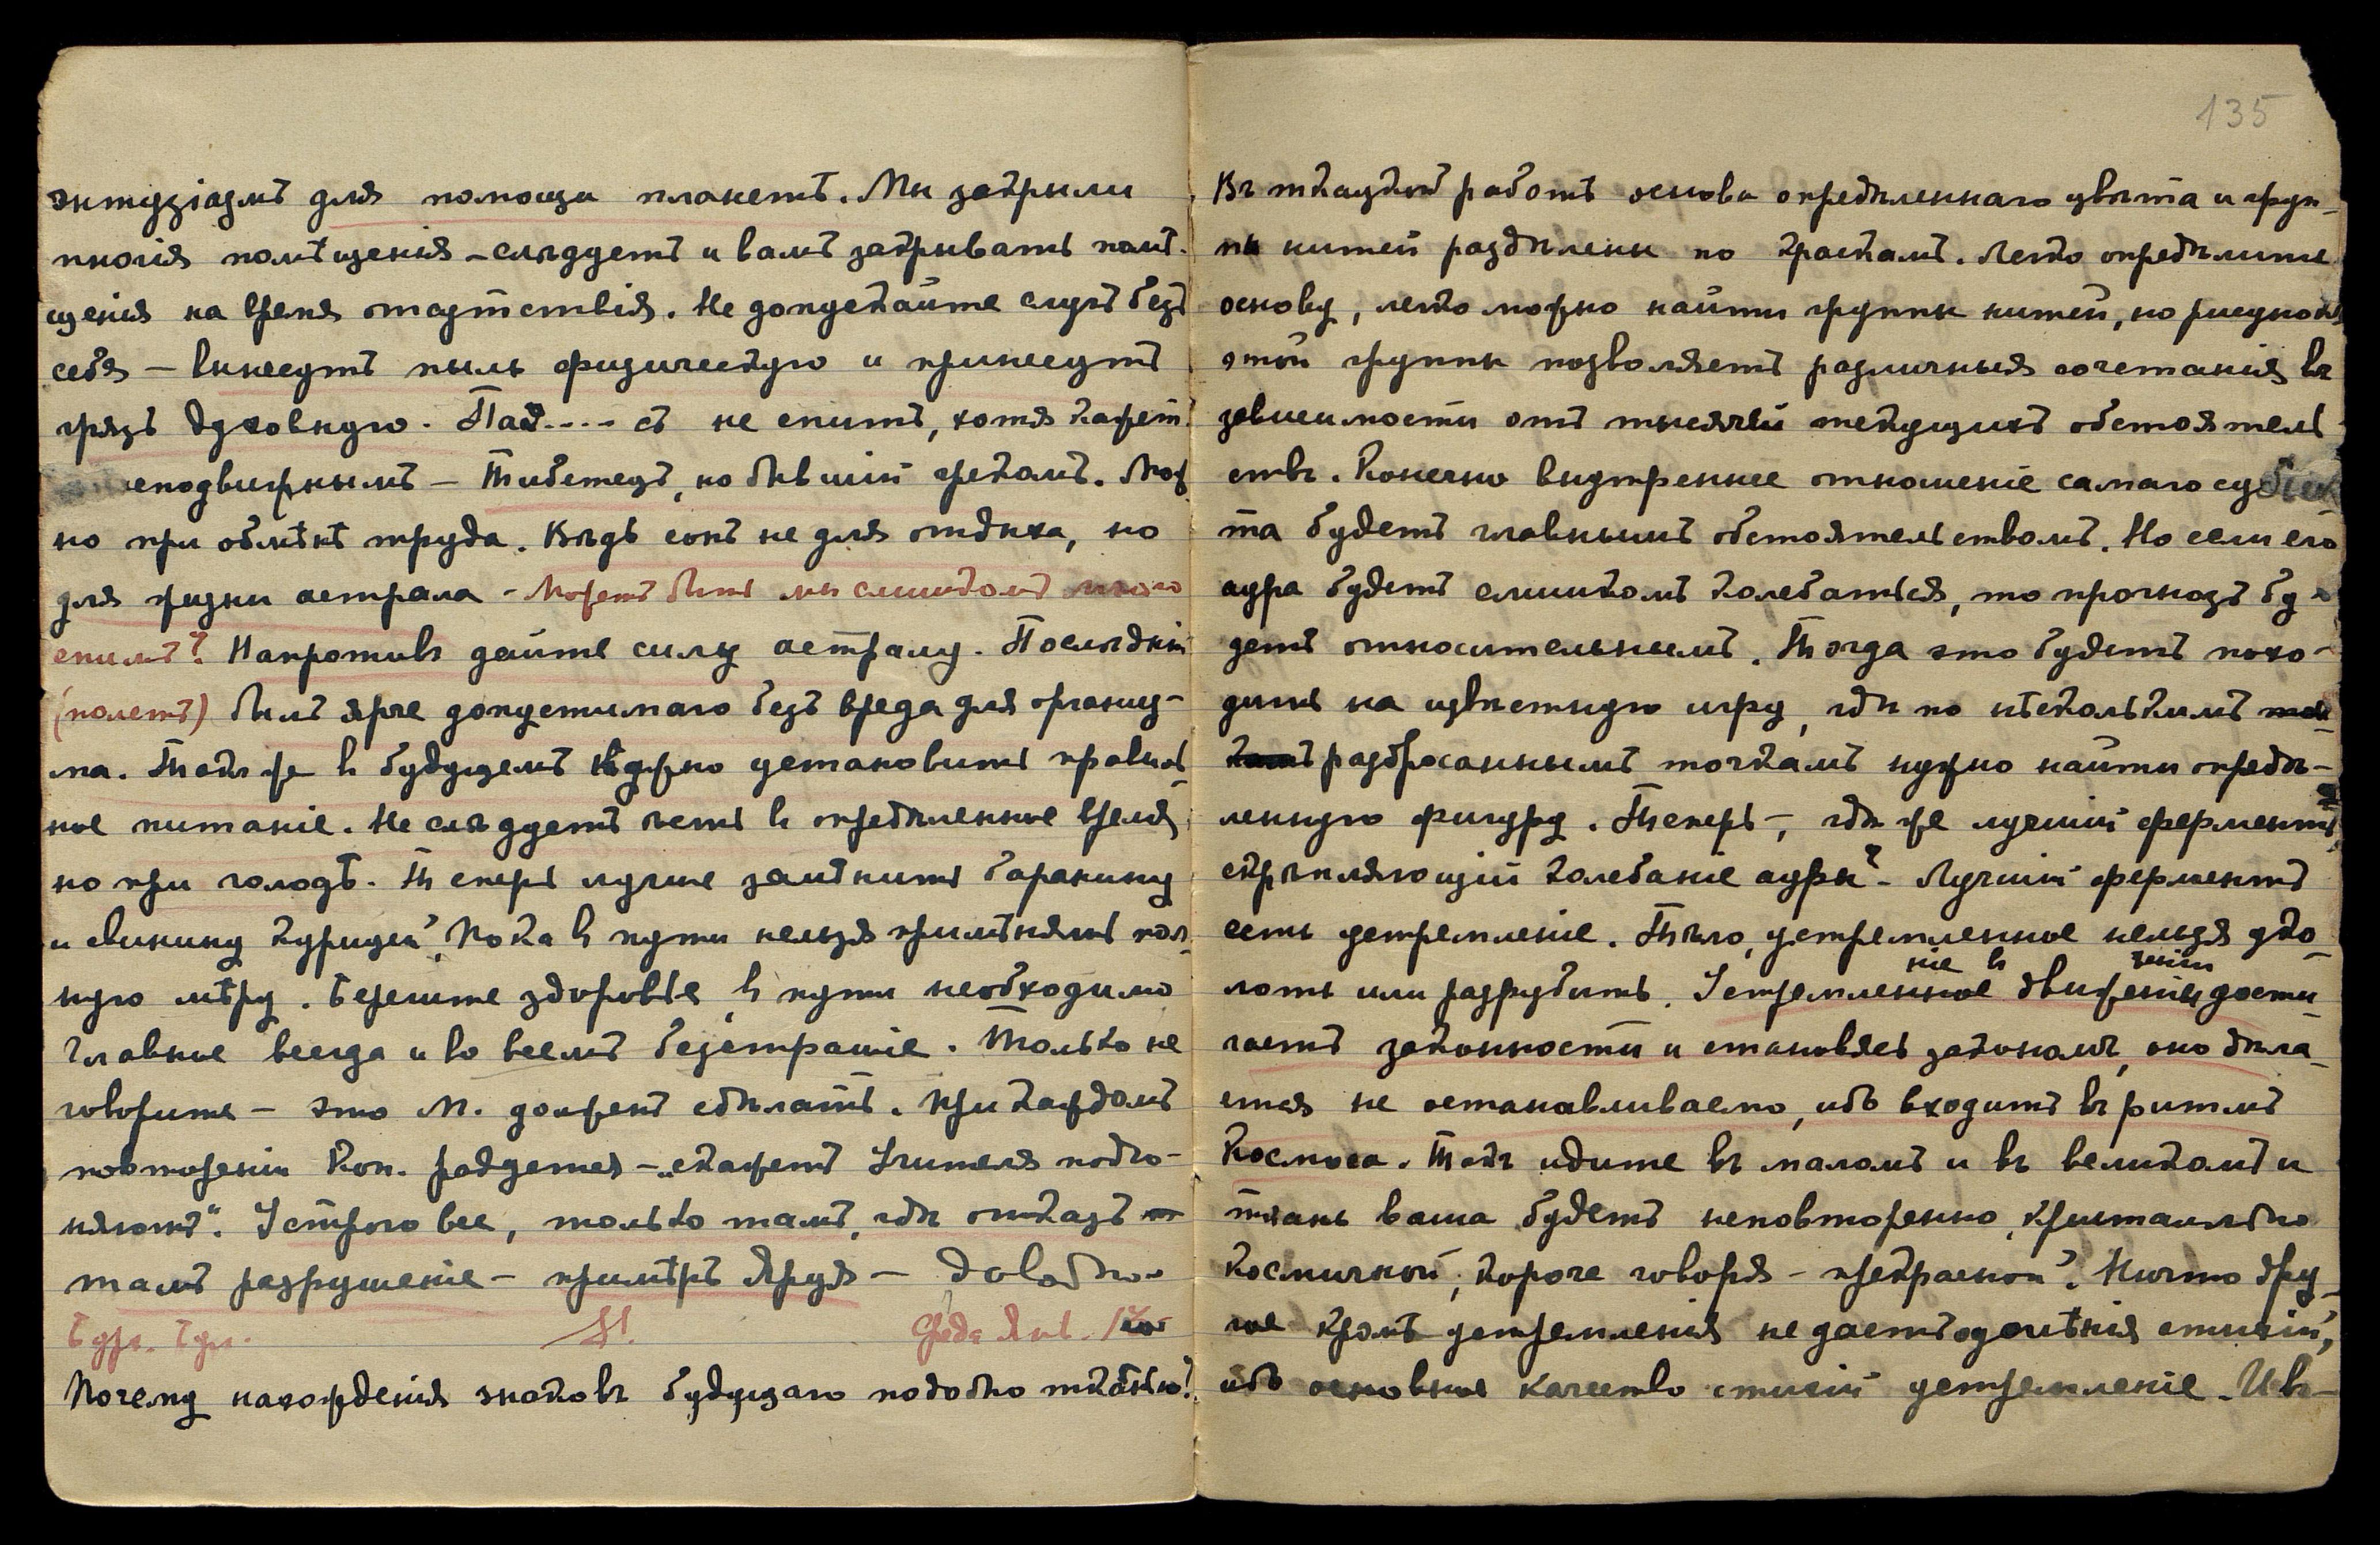 энтузіазмъ для помощи планетъ. Мы закрыли
многія помѣщенія – слѣдуетъ и вамъ закрывать помѣ-
щенія на время отсутствія. Не допускайте слугъ безъ
себя – внесутъ пыль физическую и принесутъ
грязь духовную. съ не спитъ, хотя кажет.
неподвижнымъ – Тибетецъ, но бывшій грекомъ. Мож
но при обмѣнѣ труда. Вѣдь сонъ не для отдыха, но
для жизни астрала – Можетъ быть мы слишкомъ много
спимъ? Напротивъ дайте силу астралу. Послѣдній
(полетъ) былъ ярче допустимаго безъ вреда для организ-
ма. Такъ же въ будущемъ нужно установить правиль
ное питаніе. Не слѣдуетъ ѣсть въ опредѣленное время,
но при голодѣ. Теперь лучше замѣнить баранину
и свинину курицей, пока въ пути нельзя примѣнять пол-
ную мѣру. Берегите здоровье, въ пути необходимо
Главное всегда и во всемъ безстрашіе. Только не
говорите – это М. долженъ сдѣлать. При каждомъ
повтореніи Кон. радуется – „скажетъ Учителя подго-
няютъ“. Устрою все, только тамъ, гдѣ отказъ
тамъ разрушеніе – примѣръ Яруя – довольно
Бур. Бур.
Среда Янв.
Почему нахожденія знаковъ будущаго подобно тканью?
135
Въ ткацкой работѣ основа опредѣленнаго цвѣта и груп-
пы нитей раздѣлены по краскамъ. Легко опредѣлите
основу, легко можно найти группы нитей, но рисунокъ
этой группы позволяетъ различныя сочетанія въ
зависимости отъ тысячи текущихъ обстоятель
ствъ. Конечно внутреннее отношеніе самаго субъек
та будетъ главнымъ обстоятельствомъ. Но если его
аура будетъ слишкомъ колебаться, то прогнозъ бу-
детъ относительнымъ. Тогда это будетъ похо-
дить на извѣстную игру, гдѣ по нѣсколькимъ
разбросаннымъ точкамъ нужно найти опредѣ-
ленную фигуру. Теперь –, гдѣ же лучшій ферментъ
скрѣпляющій колебаніе ауры? – Лучшій ферментъ
есть устремленіе. Тѣло, устремленное нельзя уко
лоть или разрубить. Устремленное движеніи дости
ніе въ женіи
гаетъ законности и становясь закономъ, оно дѣла
ется не останавливаемо, ибо входитъ въ ритмъ
Космоса. Такъ идите въ маломъ и въ великомъ и
ткань ваша будетъ неповторенно, кристаллѣно
космичной, короче говоря – прекрасной? Ничто дру-
гое кромѣ устремленія не даетъ одолѣнія стихій,
ибо основное качество стихій устремленіе. И въ